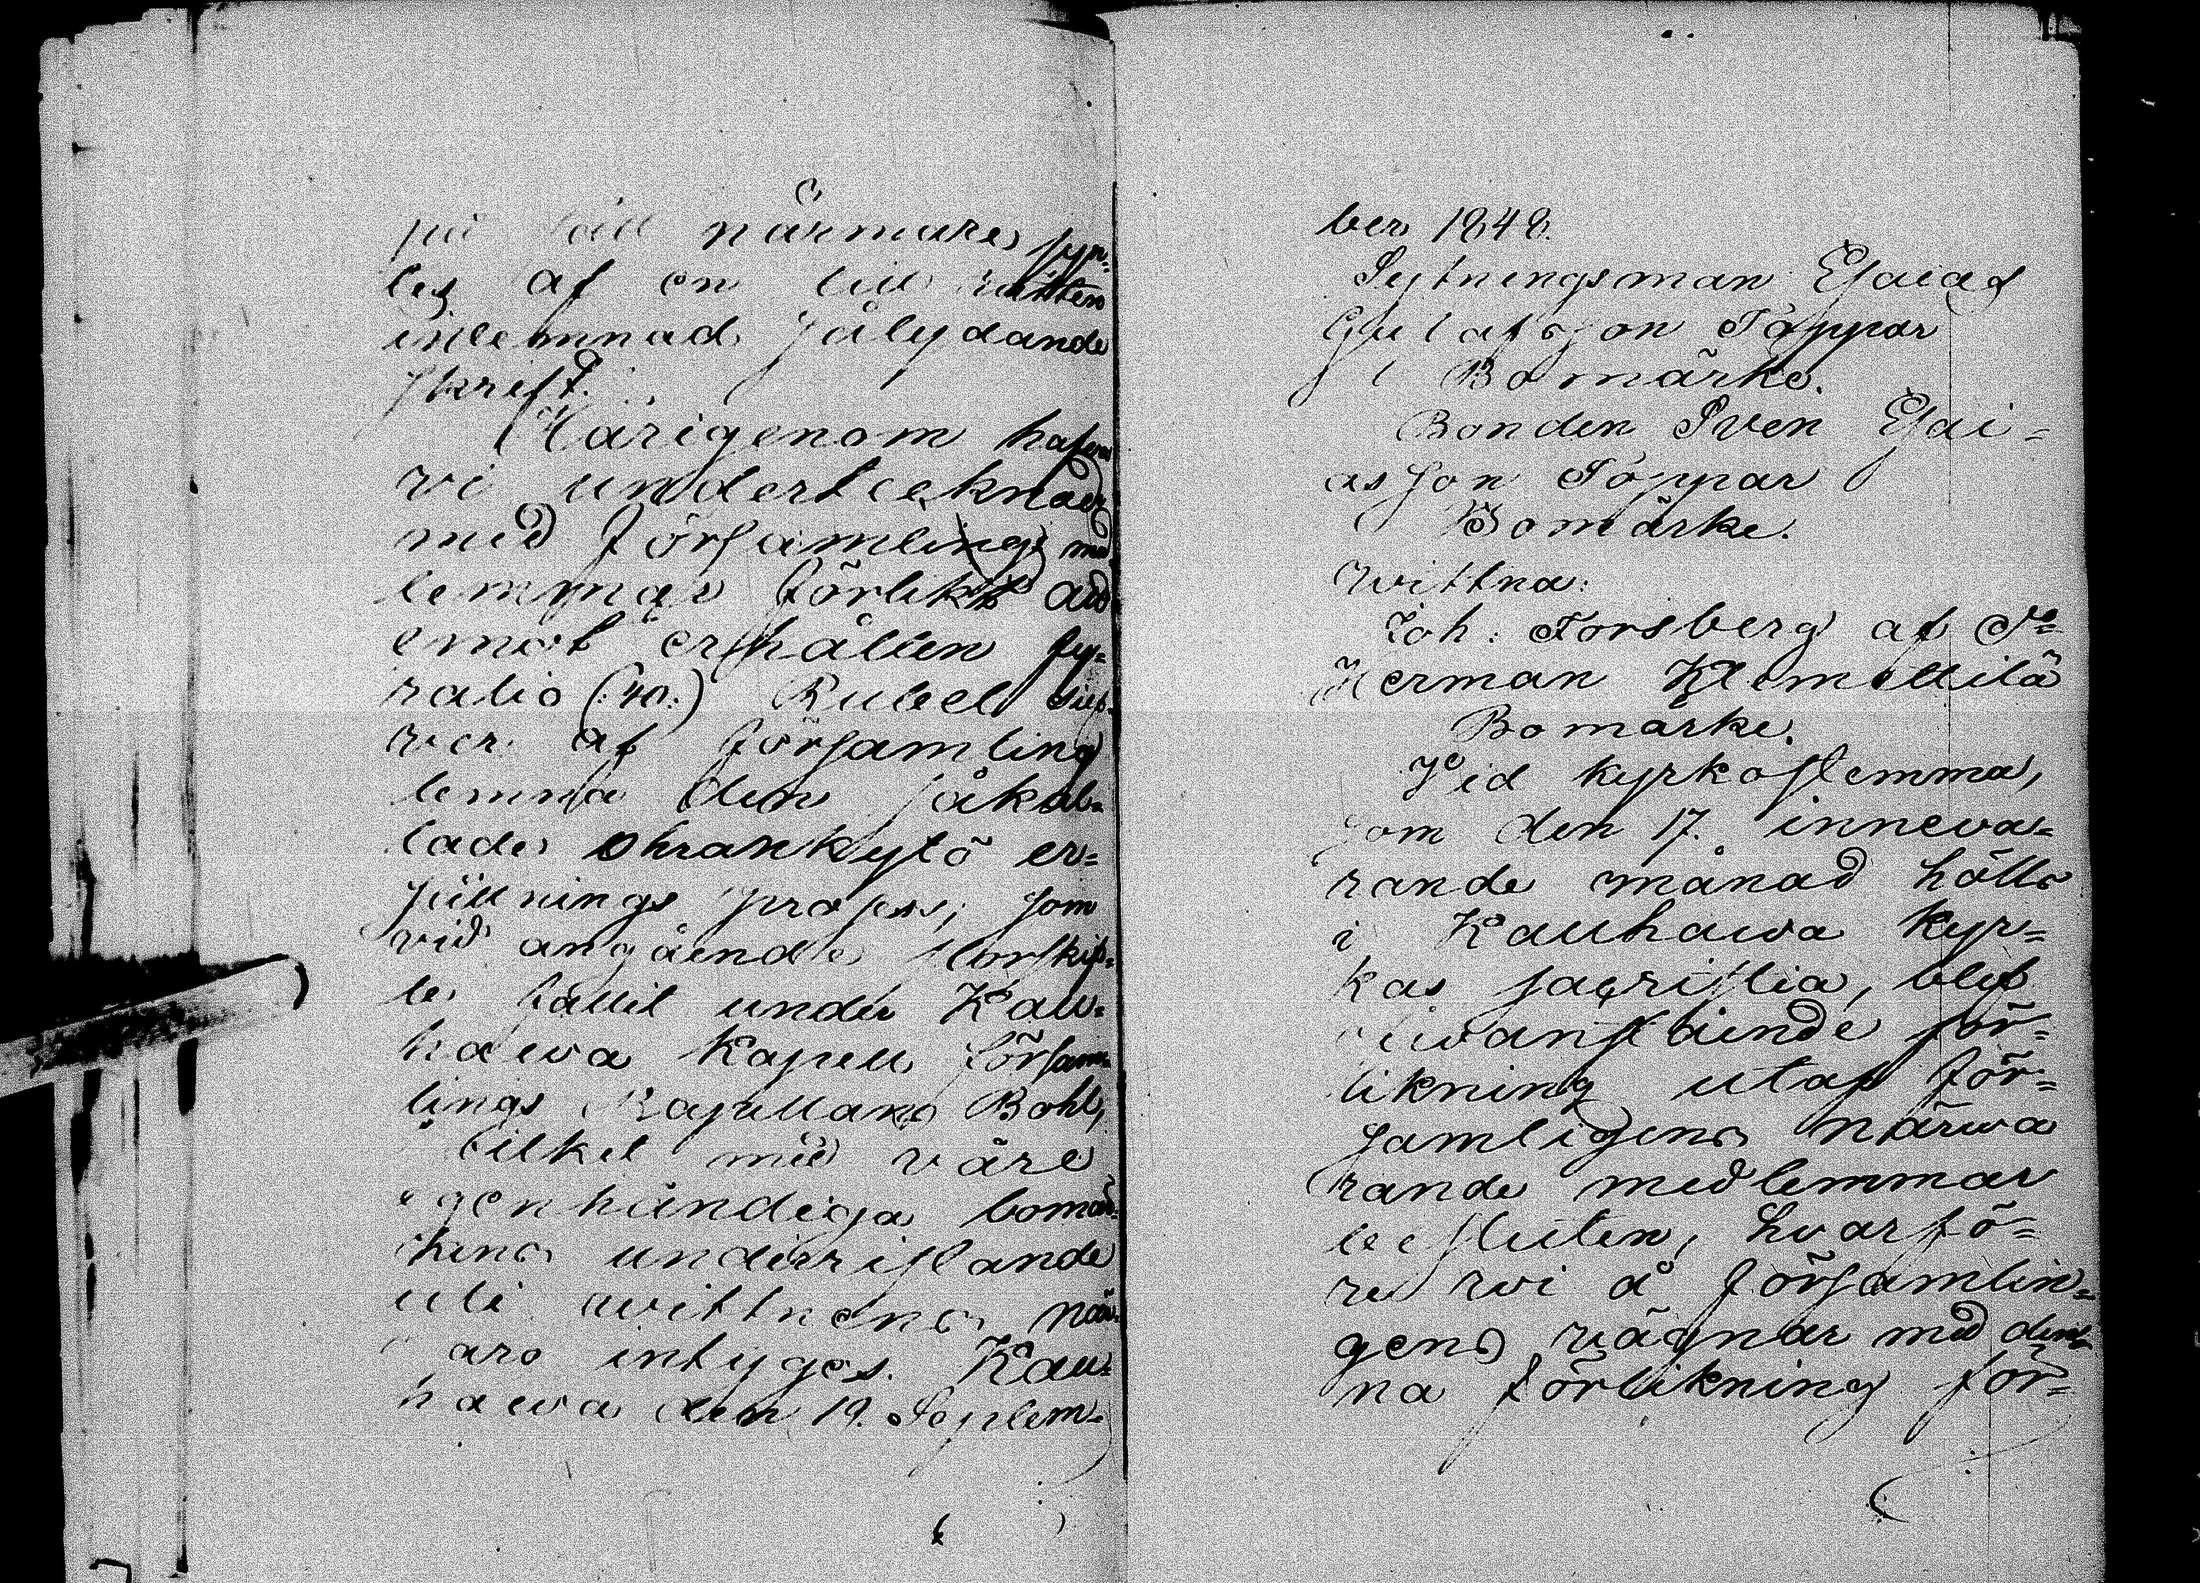 på sätt närmare syn-
tes af en till rätten
inlemnad sålydande
skrift.
Härigenom hafva
vi undertecknade
med Församlings med
lemmar förlikt oss
emot erhållen fy-
ratio (:40:) Rubel silf-
wer af församling
lemna den såkal-
lade Ohrankytö er-
sättnings process, som
vid angående storskif-
te fallit under Kau-
hawa Kapell försam-
lings Kapellans Bohl,
hvilket med våre
egenhändiga bomär-
kens underristande
uti wittnens när-
varo intyges. Kau-
hawa den 19. Septem-
ber 1848.
Sytningsman Esaias
Gustafsson Töppar
Bomärke.
Bonden Sven Esai-
asson Töppar
Bomärke.
Wittna:
Joh: Forsberg af S:
Herman Klemettilä
Bomärke.
Vid kyrkostemma,
som den 17. inneva-
rande månad hölls
i Kauhawa kyr-
kas sacristia, blef
ofwanstående för-
likning utaf För-
samligens närwa
rande medlemmar
besluten, hvarfö-
re wi å Församlin-
gens vägnar med den-
na förlikning för-